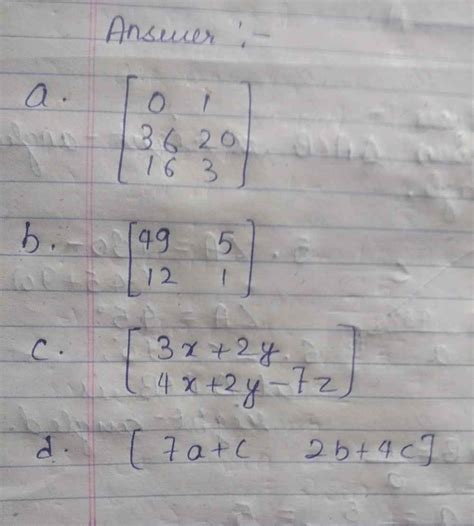 Answer :-
a. [ 0 1
36 20
16 3 ]
b. [ 49 5
12 1 ]
c. [ 3x+2y
4x+2y-7z ]
d. [ 7a+c 2b+4c ]